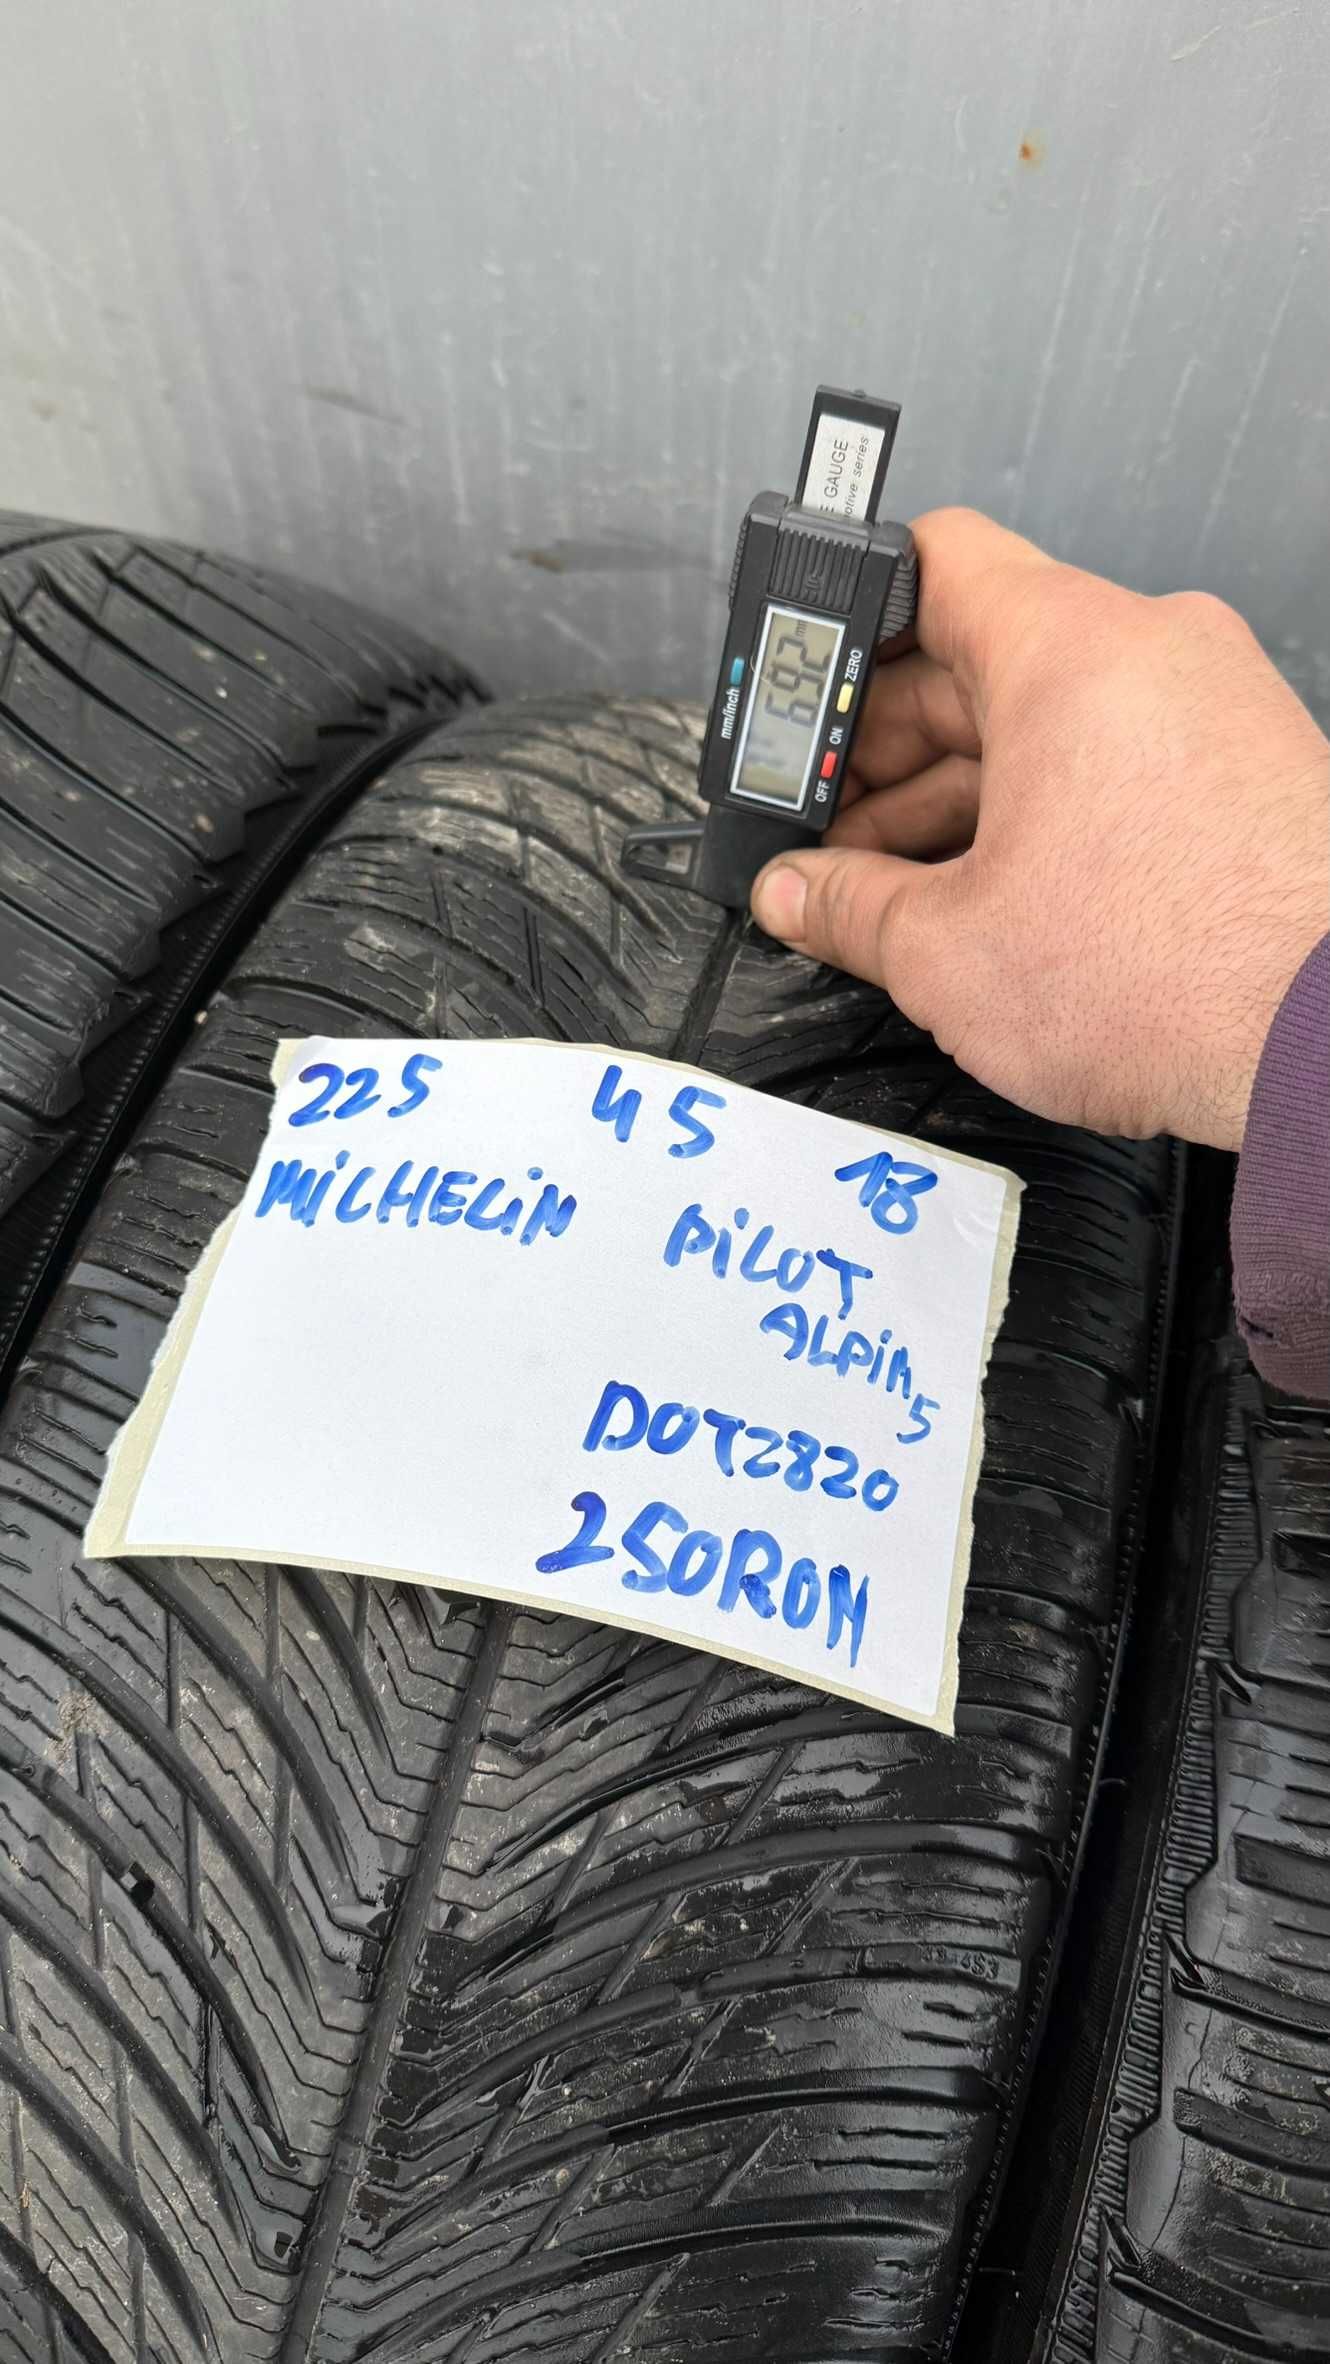 E GAUGE
otive series
mm/inch
ZERO
OFF ON
mm
225 45 18
MiCHELiN PiLOT
ALPiN 5
DOT2820
250RON